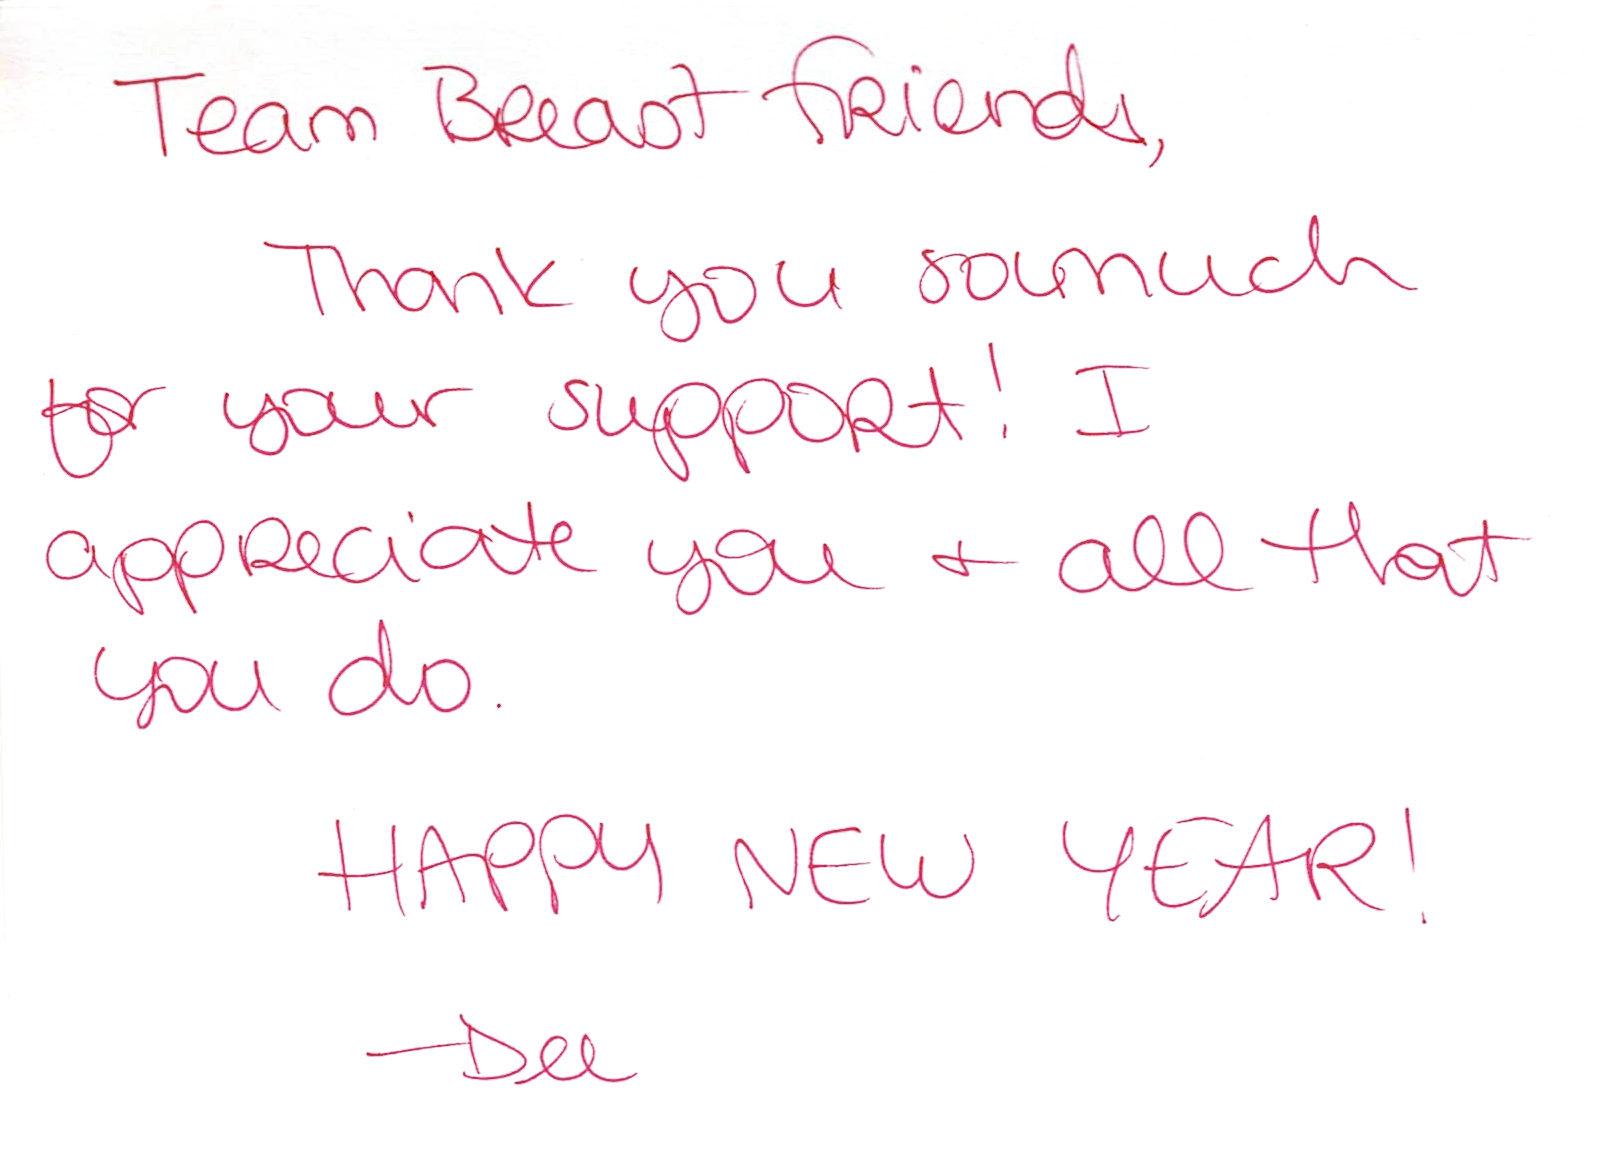 Team Breast Friends,
Thank you so much
for your support! I
appreciate you + all that
you do.
HAPPY NEW YEAR!
-Dee